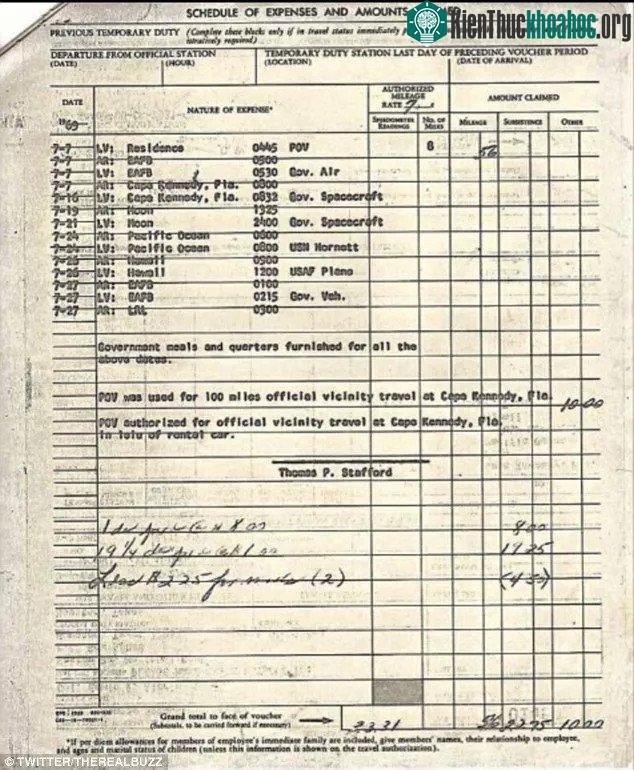 SCHEDULE OF EXPENSES AND AMOUNTS
KienThuckhoahoc.org
PREVIOUS TEMPORARY DUTY (Complete these blocks only if in travel status immediately
DEPARTURE FROM OFFICIAL STATION TEMPORARY DUTY STATION LAST DAY OF PRECEDING VOUCHER PERIOD
(DATE) (HOUR) (LOCATION) (DATE OF ARRIVAL)
DATE NATURE OF EXPENSE* AUTHORIZED MILEAGE RATE 7 AMOUNT CLAIMED
1969 SPEEDOMETER READINGS NO. OF MILES MILEAGE SUBSISTENCE OTHER
7-7 LV: Residence 0445 POV 8 .56
7-7 AR: EAFB 0500
7-7 LV: EAFB 0530 Gov. Air
7-7 AR: Cape Kennedy, Fla. 0800
7-16 LV: Cape Kennedy, Fla. 0832 Gov. Spacecraft
7-19 AR: Moon 1325
7-21 LV: Moon 2400 Gov. Spacecraft
7-24 AR: Pacific Ocean 0600
7-24 LV: Pacific Ocean 0800 USN Hornett
7-26 AR: Hawaii 0900
7-26 LV: Hawaii 1200 USAF Plane
7-27 AR: EAFB 0100
7-27 LV: EAFB 0215 Gov. Veh.
7-27 AR: 0300
Government meals and quarters furnished for all the
above dates.
POV was used for 100 miles official vicinity travel at Cape Kennedy, Fla. 10.00
POV authorized for official vicinity travel at Cape Kennedy, Fla.
in leiu of rental car.
Thomas P. Stafford
8.00
19 1/4 19 25
(2) (4 50)
Grand total to face of voucher
(Subtotals, to be carried forward if necessary) 33.31 .56 22.75 10.00
*If per diem allowances for members of employee's immediate family are included, give members' names, their relationship to employee,
and ages and marital status of children (unless this information is shown on the travel authorization).
© TWITTER/THEREALBUZZ